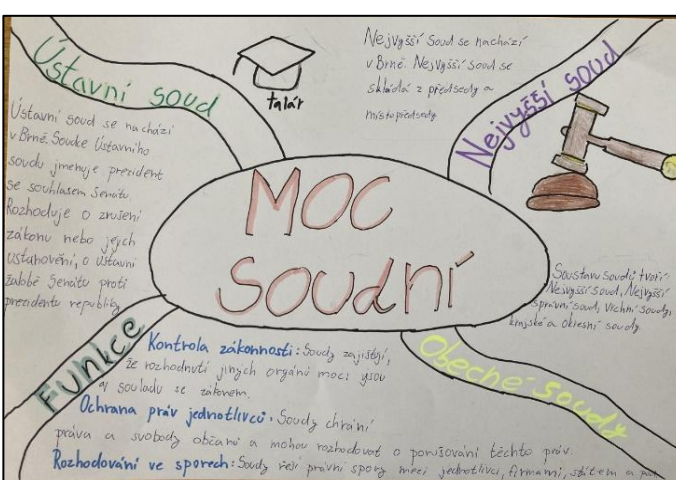 MOC
SOUDNÍ
Ústavní soud
Ústavní soud se nachází
v Brně. Soudce Ústavního
soudu jmenuje prezident
se souhlasem Senátu.
Rozhoduje o zrušení
zákonu nebo jejich
ustanovění, o ústavní
žalobě Senátu proti
prezidentu republiky
talár
Nejvyšší Soud se nachází
v Brně. Nejvyšší soud se
skládá z předsedy a
místopředsedy
Nejvyšší soud
Soustavu soudů tvoří:
Nejvyšší soud, Nejvyšší
správní soud, Vrchní soudy,
krajské a okresní soudy.
Obecné soudy
Funkce
Kontrola zákonnosti: Soudy zajištují,
že rozhodnutí jiných orgánů moci jsou
v souladu se zákonem.
Ochrana práv jednotlivců: Soudy chrání
práva a svobody občanů a mohou rozhodovat o porušování těchto práv.
Rozhodování ve sporech: Soudy řeší právní spory mezi jednotlivci, firmami, státem a